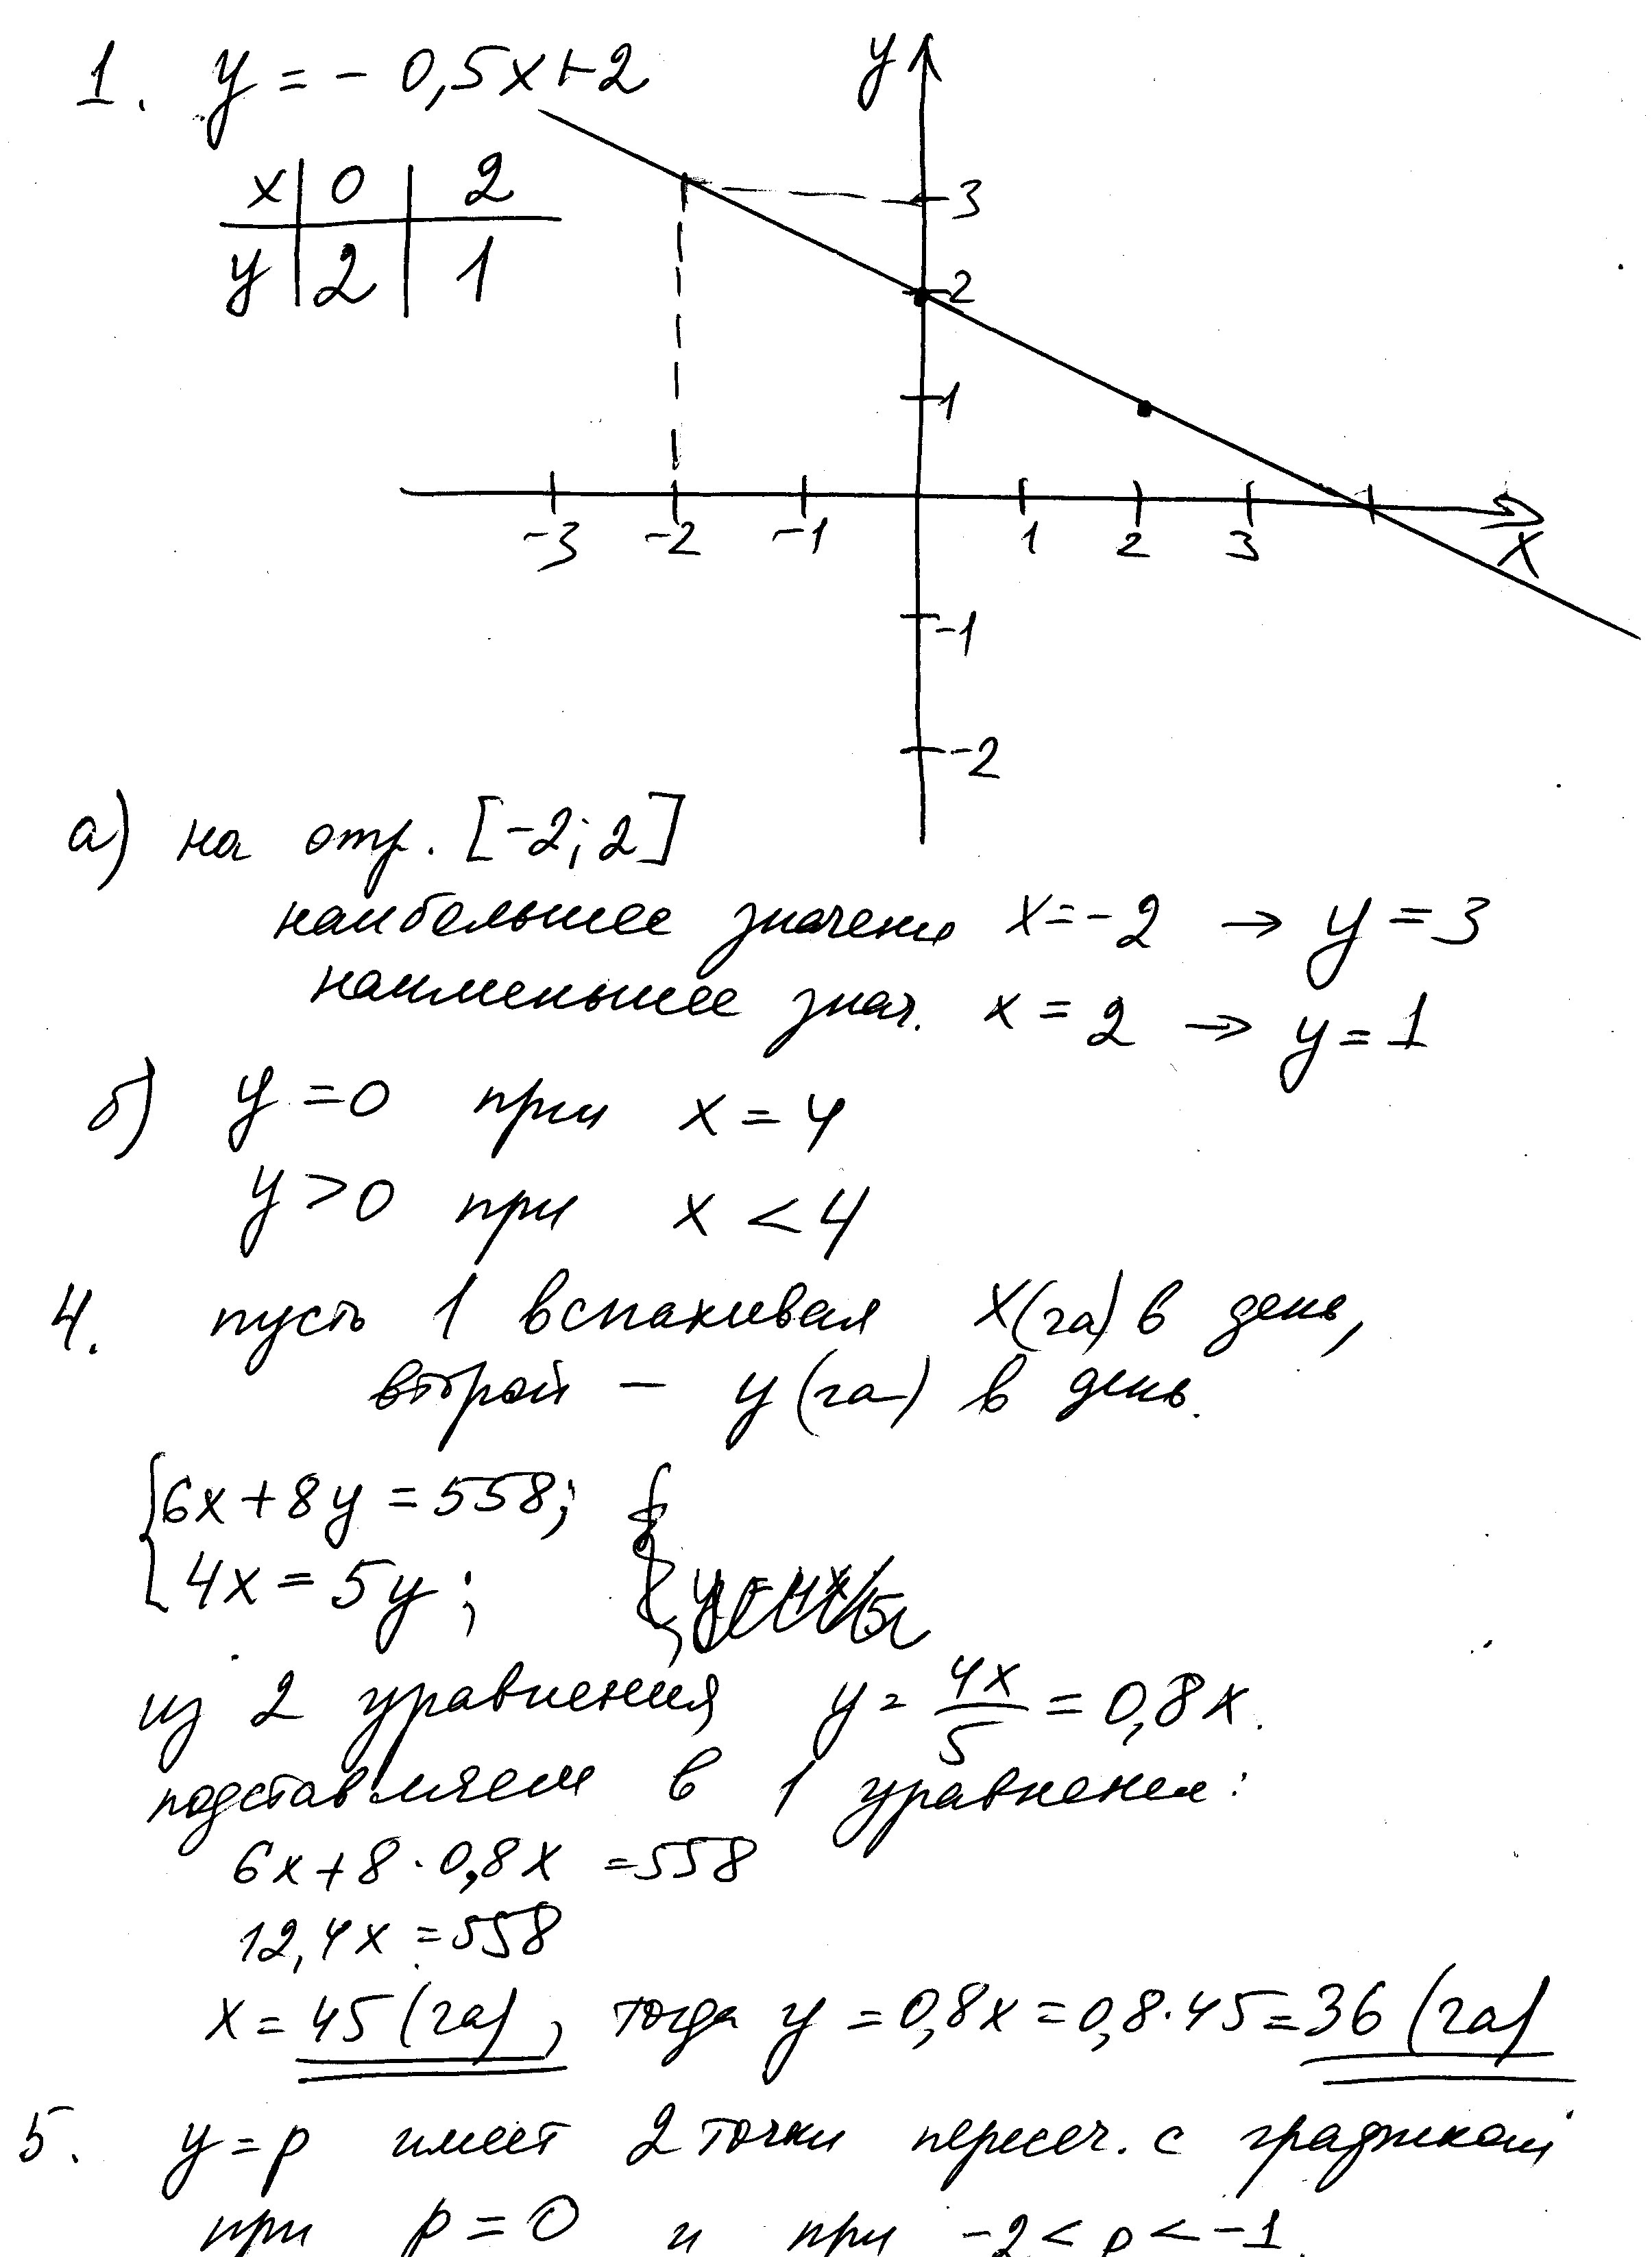 1. y = - 0,5x+2
x | 0 | 2
y | 2 | 1
y
3
2
1
-3 -2 -1 1 2 3
x
-1
-2
а) на отр. [-2; 2]
наибольшее значение x=-2 → y=3
наименьшее знач. x=2 → y=1
б) y=0 при x=4
y>0 при x<4
4. пусть 1 вспахивал x(га) в день,
второй - y(га) в день.
6x+8y=558;
4x=5y;
из 2 уравнения y= 4x/5 = 0,8x.
подставляем в 1 уравнение:
6x+8·0,8x=558
12,4x=558
x=45(га), тогда y=0,8x=0,8·45=36(га)
5. y=p имеет 2 точки пересеч. с графиком
при p=0 и при -2<p<-1.